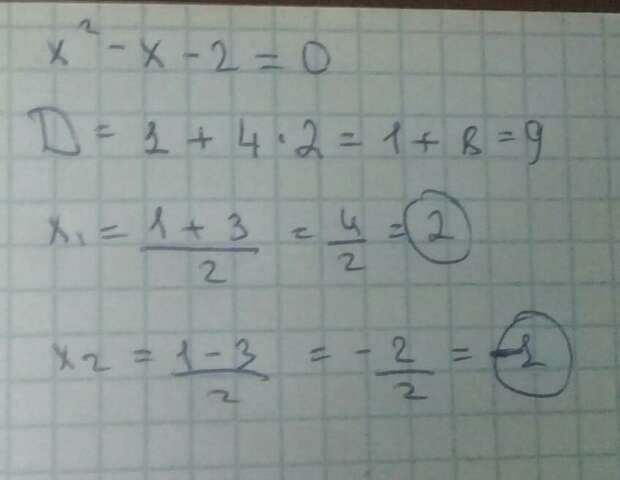 x² - x - 2 = 0
D = 1 + 4 · 2 = 1 + 8 = 9
x₁ = (1 + 3)/2 = 4/2 = 2
x₂ = (1 - 3)/2 = -2/2 = -1